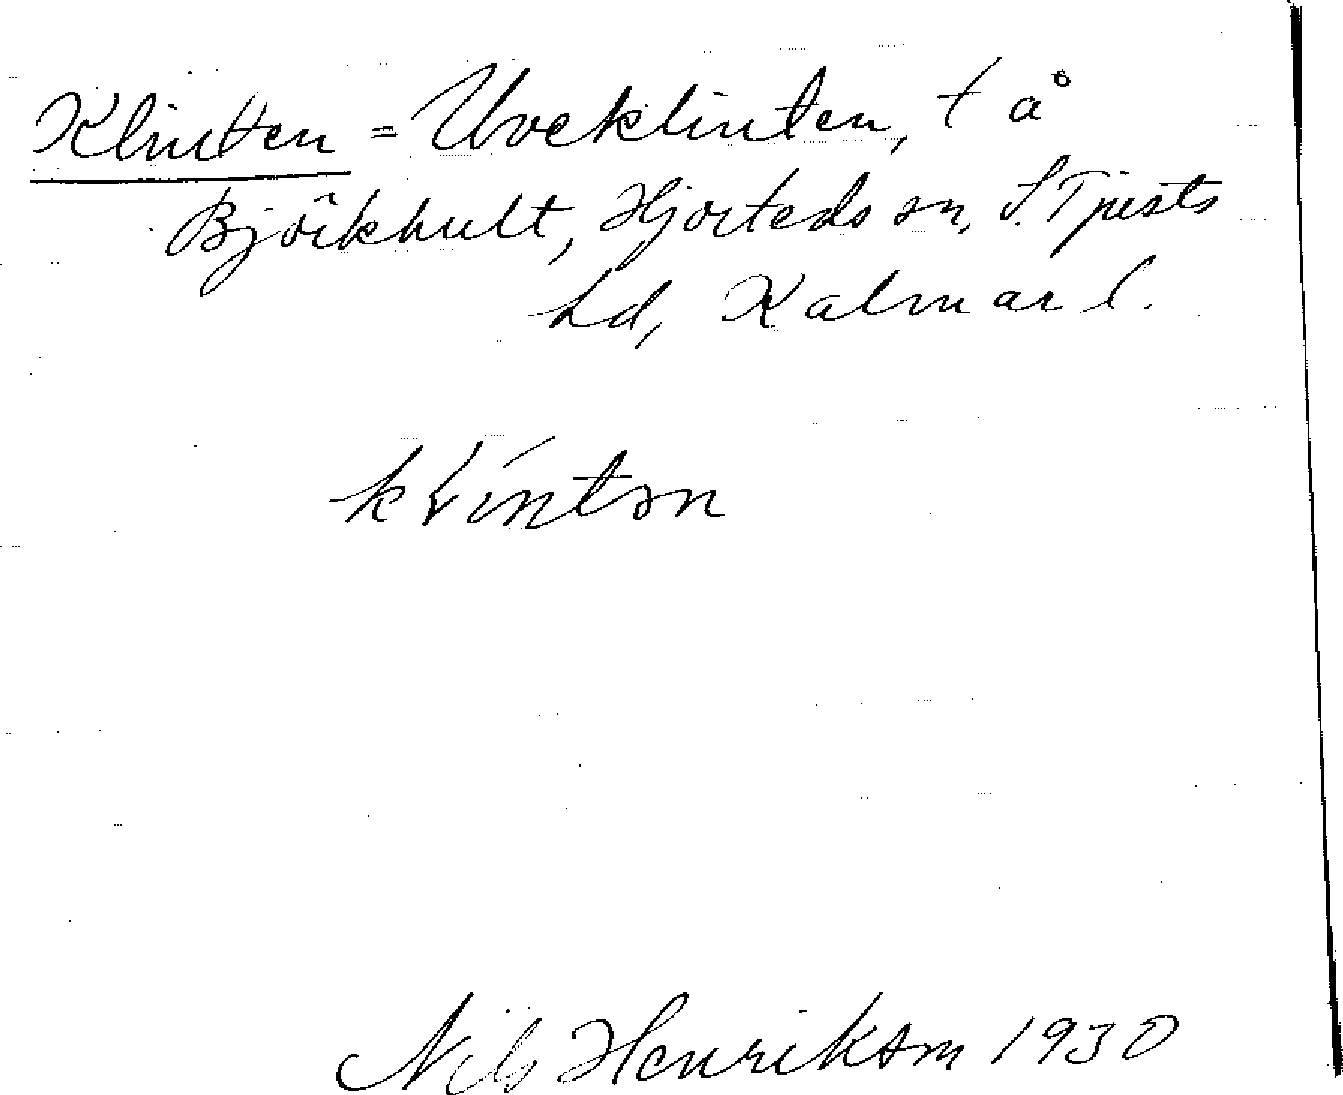 Klinten = Uveklinten, t å
Björkhult, Hjorteds sn, S. Tjusts
hd, Kalmar l.
Nils Henrikson 1930